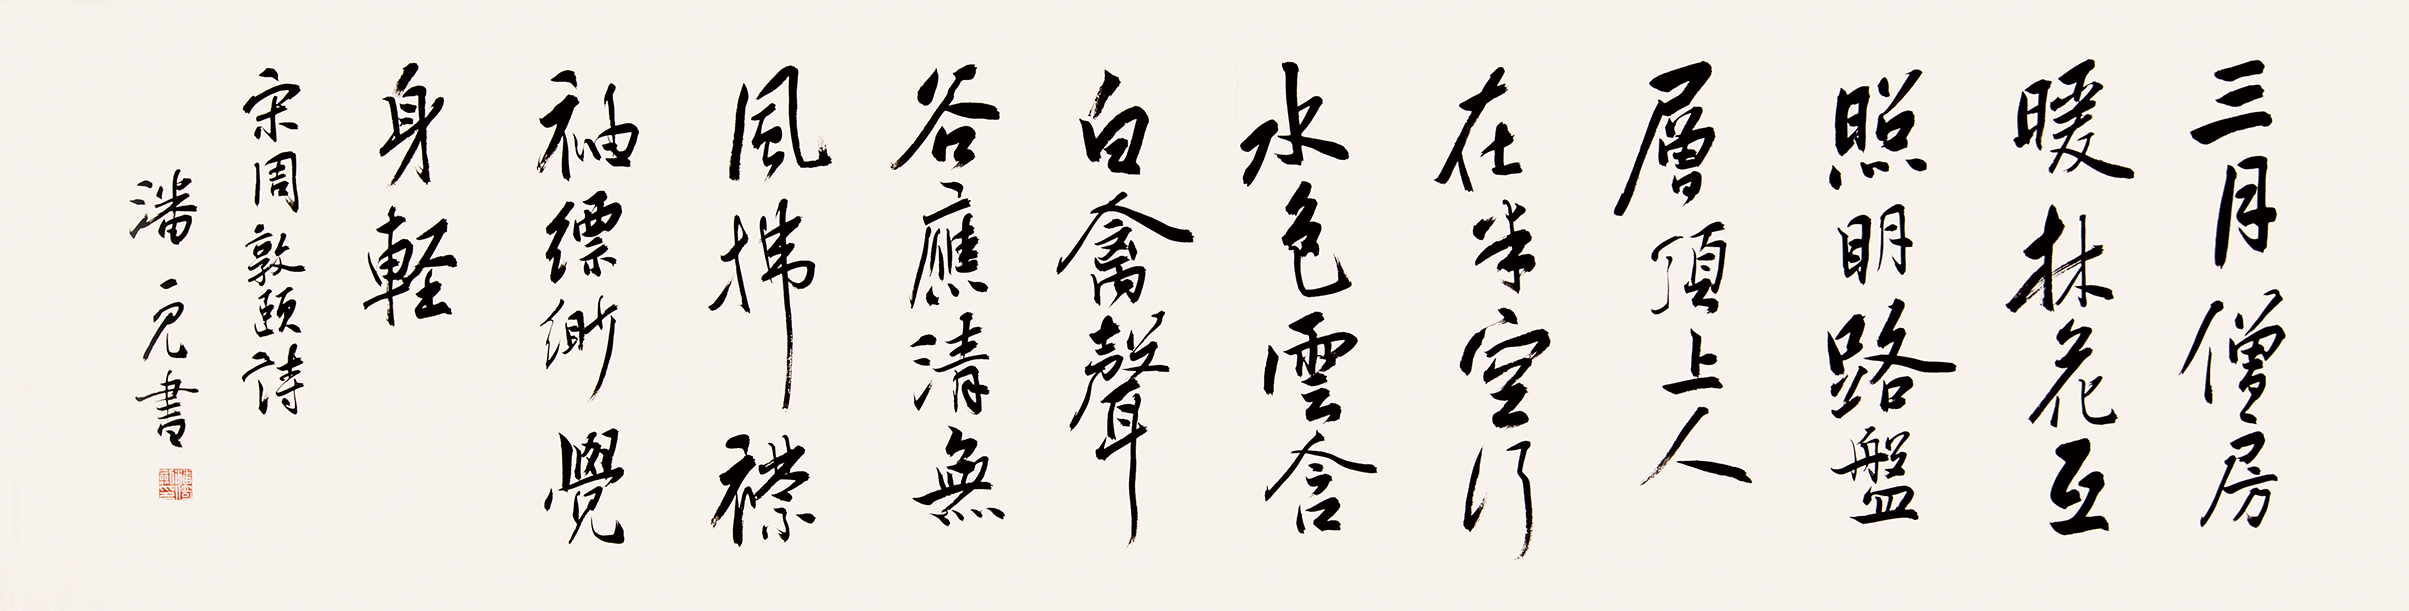 三月僧房
暖林花互
照明路盤
層頂上人
在半空行
水色雲含
白禽聲
谷應清無
風拂襟
袖縹緲覺
身軽
宋周敦頤詩
潘一見書